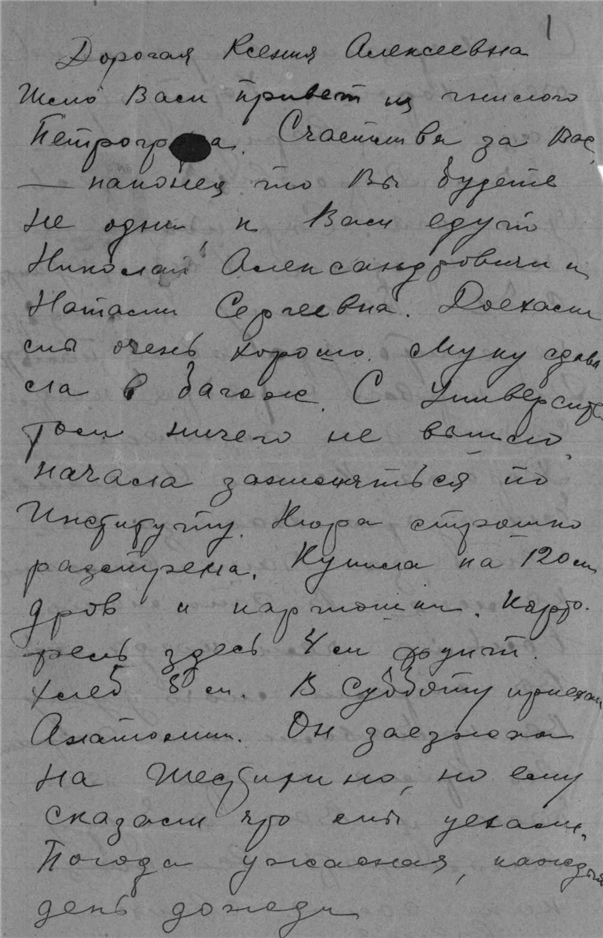 1
Дорогая Ксения Алексеевна
Шлю Вам привет из гнилого
Петрогр а. Счастлива за Вас,
— наконец то Вы будете
не одни к Вам едут
Николай Александрович и
Наталия Сергеевна. Доехали
мы очень хорошо. Муку сдава
ла в багаж. С Университе
том ничего не вышло,
начала заниматься по
Институту. Нюра страшно
разстроена. Купила на 120 м
дров и картошки. Карто-
фель здесь 4 м фунт.
Хлеб 8 м. В Субботу приехал
Анатолий. Он заезжал
на но ему
сказали что мы уехали.
Погода ужасная, каждый
день дожди